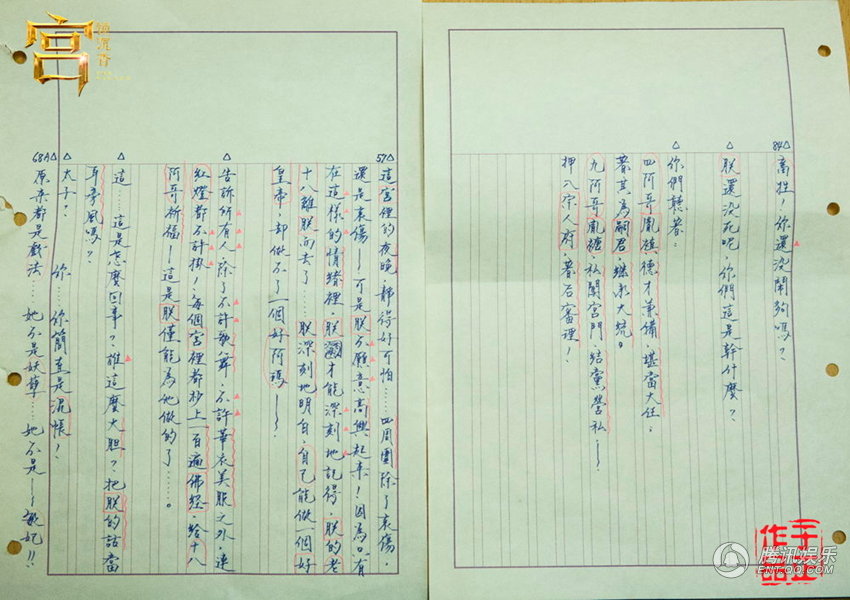 宫
锁沉香
57△這宮裡的夜晚,靜得好可怕……四周圍除了哀傷,
還是哀傷——可是朕不願意高興起來!因為,有
在這樣的情緒裡,朕才能深刻地記得,朕的老
十八離朕而去了……朕深刻地明白,自己能做一個好
皇帝,却做不了一個好阿瑪——。
△告訴所有人,除了不許歌舞、不許華衣美服之外,連
紅燈都不許掛!每個宮裡都抄上一百遍佛經,給十八
阿哥祈福——這是朕僅能為他做的了……。
△這……這是怎麼回事?誰,這麼大胆?把朕的話當
耳旁風嗎?
△太子?……你……你簡直是混帳!
68A△原來都是戲法……她不是妖孽……她不是——敏妃!!
84△畜牲!你還没鬧夠嗎?
△朕還没死呢,你們這是幹什麼?
△你們聽著:
四阿哥胤禛,德才兼備,堪當大任,
著其為嗣君,繼承大統。
九阿哥胤禟,私闖宮門,結黨營私——
押入宗人府,著后審理!
于正
作品
腾讯娱乐
ENT.QQ.COM